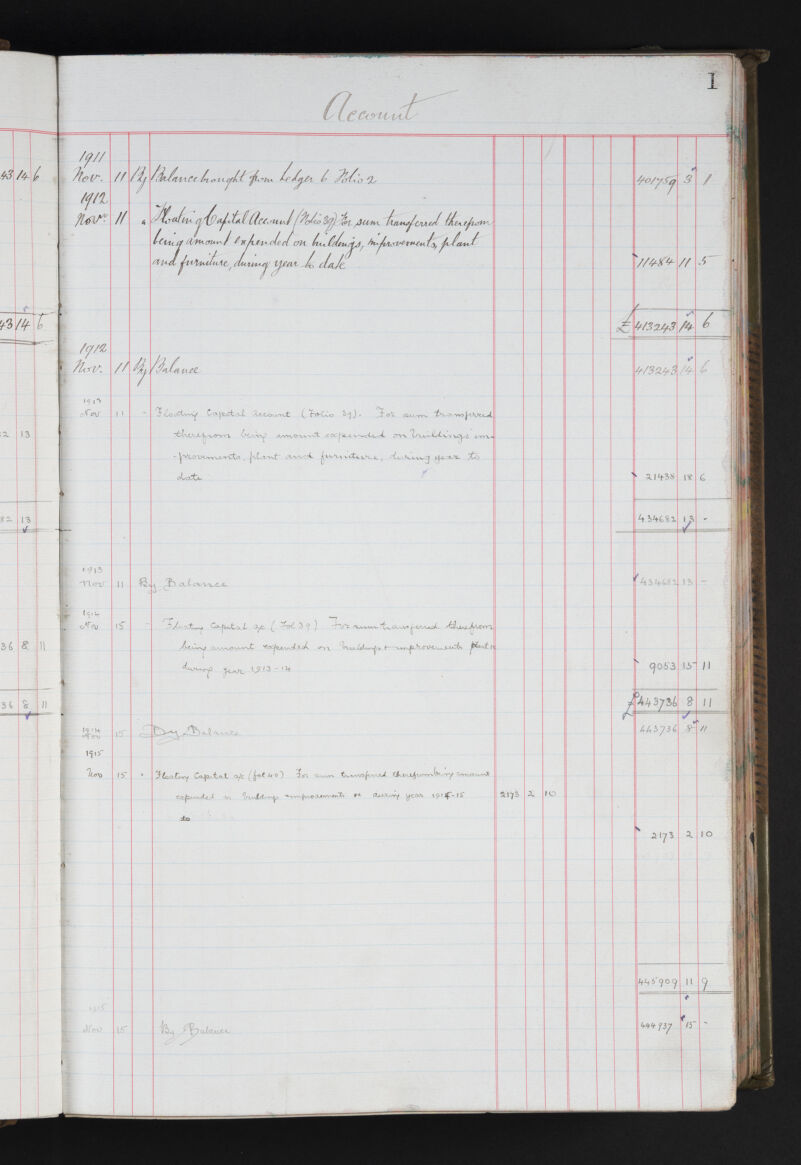 1
Account
1911
Nov. 11 By Balance brought from Ledger 6 Folio 2 401759 3 1
1912
Novr 11 " Floating Capital Account (Folio 39) For sum transferred therefrom
being amount expended on buildings, improvements, plant
and furniture, during year to date 11484 11 5
43 14 6
£ 413243 14 6
43 14 6
1912
Nov. 11 By Balance 413243 14 6
1913
Nov 11 - Floating Capital account (Folio 39). For sum transferred
therefrom being amount expended on buildings im-
-provements, plant and furniture, during year to
date 21438 18 6
2 13
434682 13 -
82 13
1913
Nov 11 By Balance 434682 13 -
1914
Nov 15 - Floating Capital a/c (Fol 39) For sum transferred therefrom
being amount expended on buildings + improvements plant
during year 1913-14 9053 15 11
36 8 11
£443736 8 11
36 8 11
1914
Nov 15 By Balance 443736 8 11
1915
Nov 15 " Floating Capital a/c (fol 40) For sum transferred therefrom being amount
expended on buildings improvements during year 1914-15 2173 2 10
to
2173 2 10
445909 11 9
1915
Nov 15 By Balance 444937 15 -